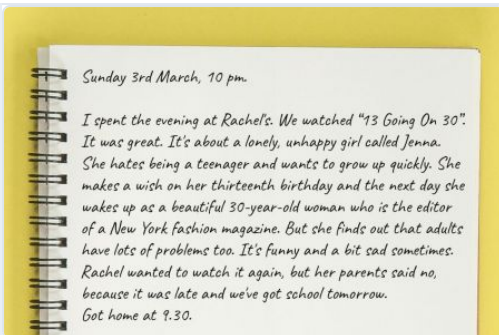 Sunday 3rd March, 10 pm.
I spent the evening at Rachel's. We watched "13 Going On 30".
It was great. It's about a lonely, unhappy girl called Jenna.
She hates being a teenager and wants to grow up quickly. She
makes a wish on her thirteenth birthday and the next day she
wakes up as a beautiful 30-year-old woman who is the editor
of a New York fashion magazine. But she finds out that adults
have lots of problems too. It's funny and a bit sad sometimes.
Rachel wanted to watch it again, but her parents said no,
because it was late and we've got school tomorrow.
Got home at 9.30.